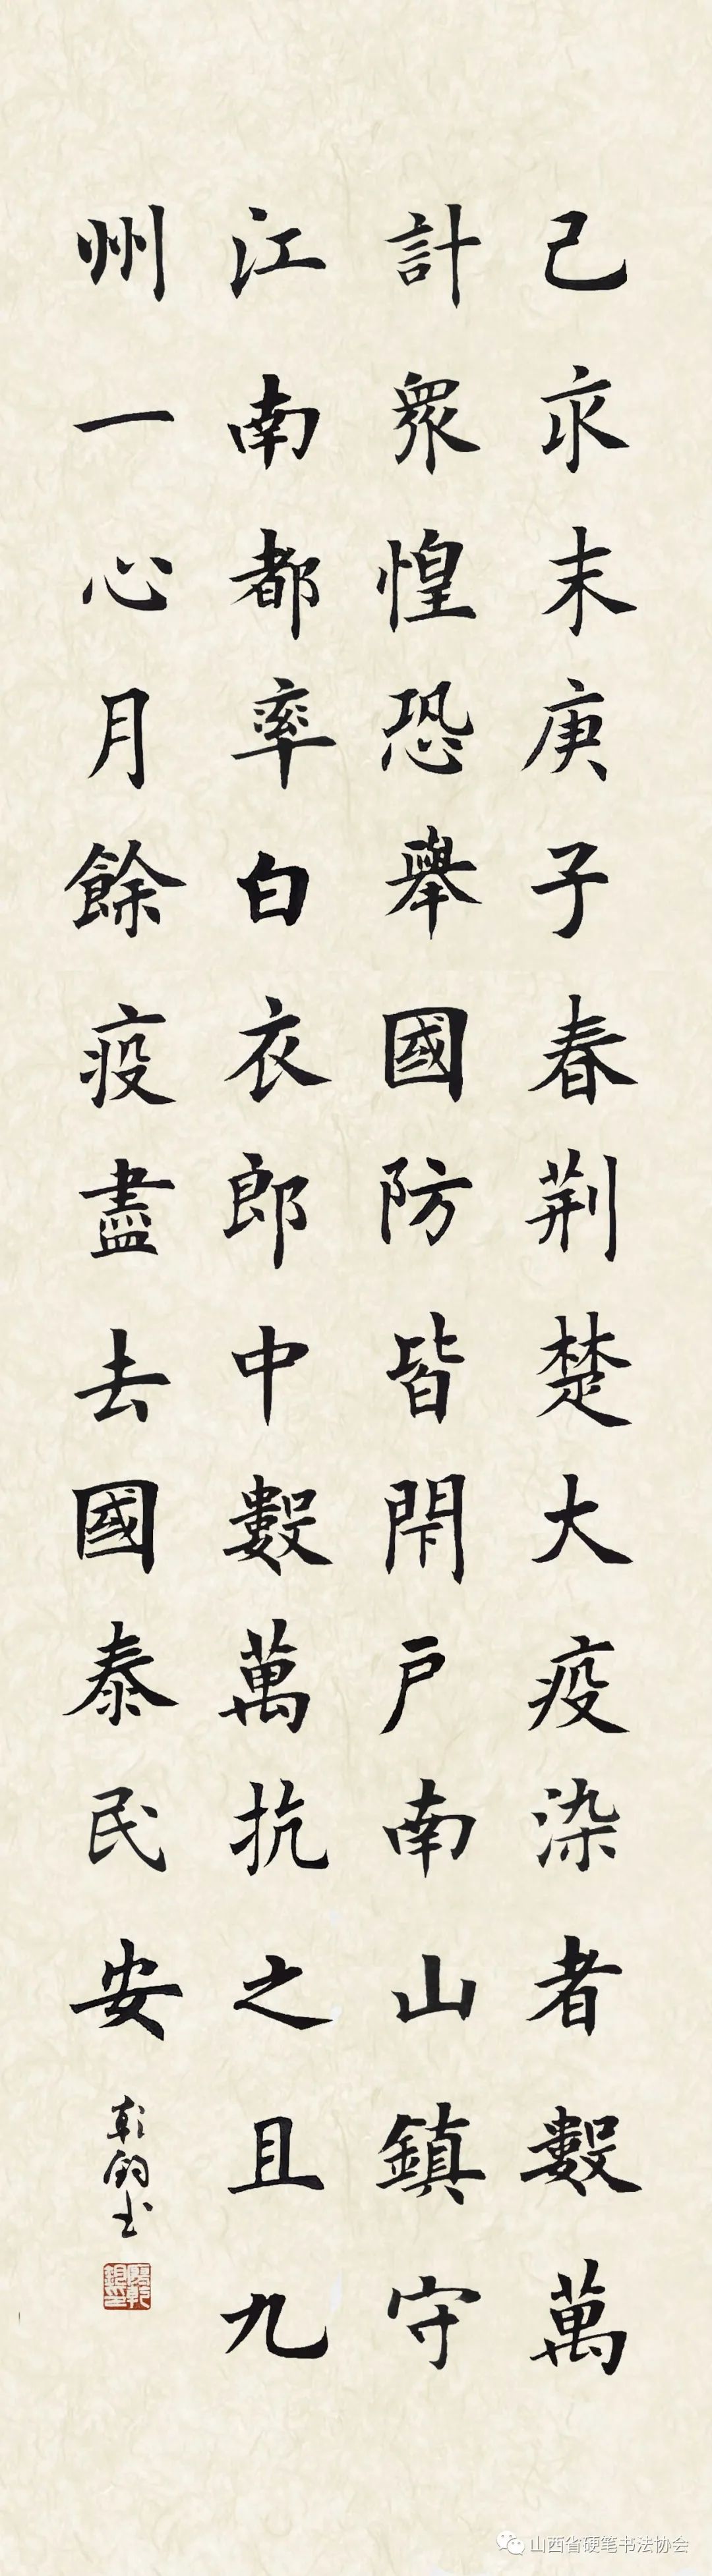 己亥末庚子春荆楚大疫染者數萬
計衆惶恐舉國防皆閉户南山鎮守
江南都率白衣郎中數萬抗之且九
州一心月餘疫盡去國泰民安
山西省硬笔书法协会